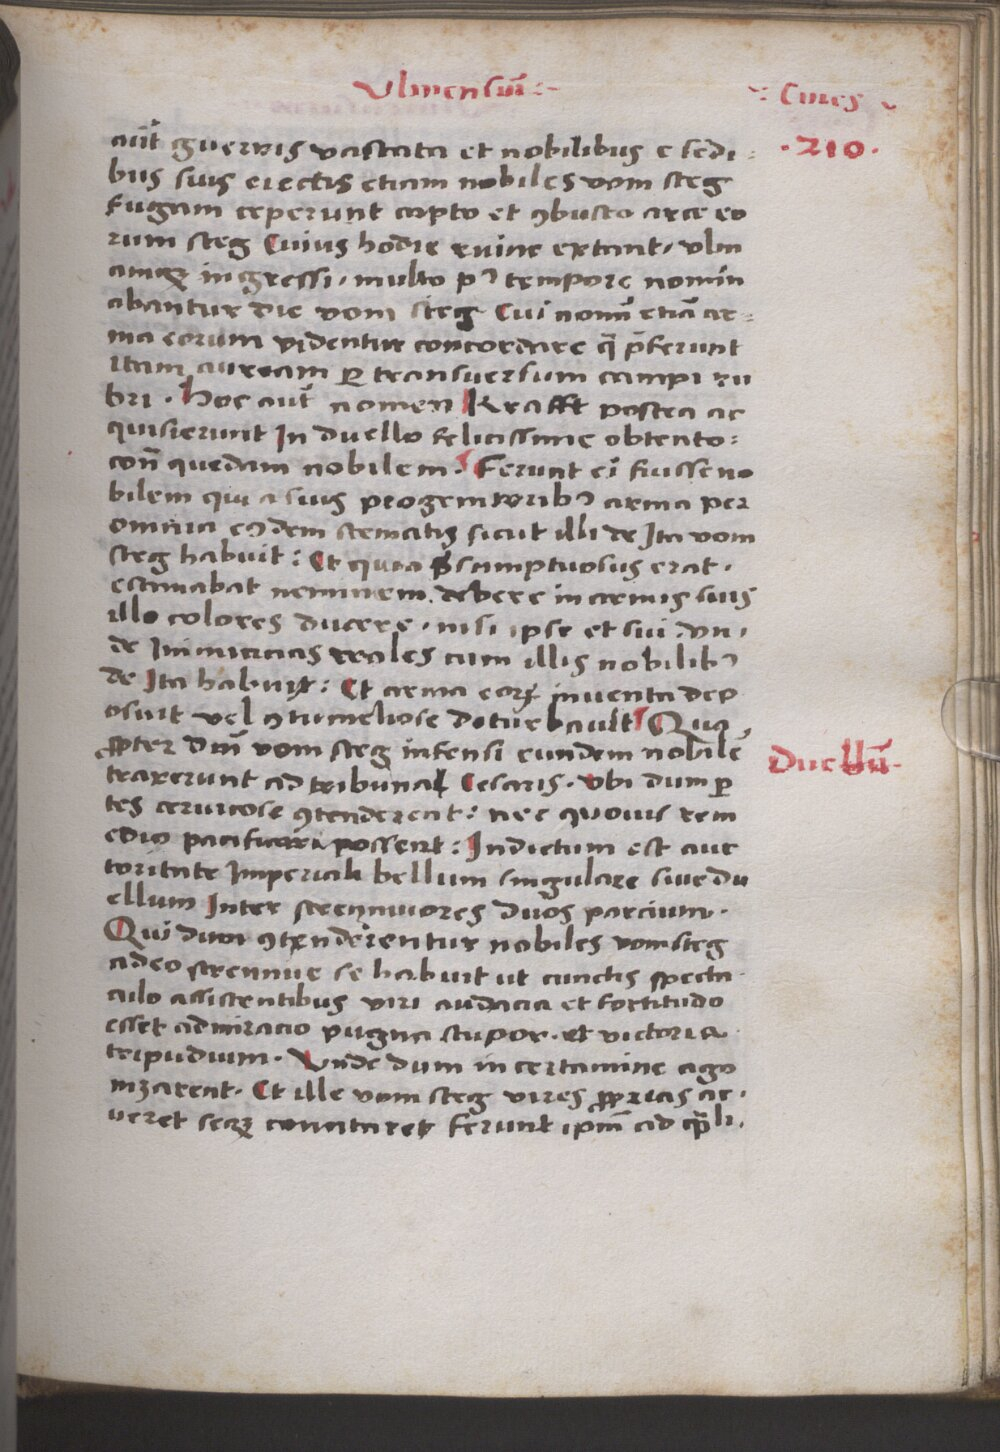 Vlmensiū
Ciues
·210·
aūt guerris vastata et nobilibus e sedi
bus suis eiectis etiam nobiles vom steg
fugam ceperunt capto et ꝯbusto arce eo
rum steg Cuius hodie ruine extant· vlm
amqꝫ ingressi· multo pꝰ tempore nomin
abantur die vom steg Cui nomī etiā ar
ma eorum videntur concordare q̄ p̄ferunt
Itam auream ꝑ transuersum campi ru
bri· Hoc aūt nomen Krafft postea ac
quisierunt In duello felicissime obtento
con̄ quedam nobilem· Ferunt eī fuisse no
bilem qui a suis progenitoribꝰ arma per
omnia eꝰdem stematis sicut illi de Ita vom
steg habuit: Et quia sumptuosus erat·
estimabat neminem debere in armis suis
illo colores ducere· nisi ipse et sui· vn
de Inimicicias reales cum illis nobilibꝰ
de Ita habuit: Et arma eoꝝ inuenta dep
osuit vel ꝯtumeliose deturbauit Qua
ꝓpter dn̄i vom steg infensi eundem nobilē
traxerunt ad tribunal Cesaris· vbi dum ꝑ
tes ceruicose ꝯtenderent: nec quouis rem
edio pacificari possent: Indictum est auc
toritate Imperiali bellum singulare siue du
ellum Inter strennuiores duos parcium·
Qui dum ꝯtenderentur nobiles vom steg
adeo strennue se habuit ut cunctis specta
culo assistentibus viri audacia et fortitudo
esset admiracio pugna stupor· et victoria
tripudium· Vnde dum in certamine ago
nizarent· Et ille vom steg vires ꝓprias ac
ueret seqꝫ conaretur ferunt ipm̄ ad p̄li
Duellū